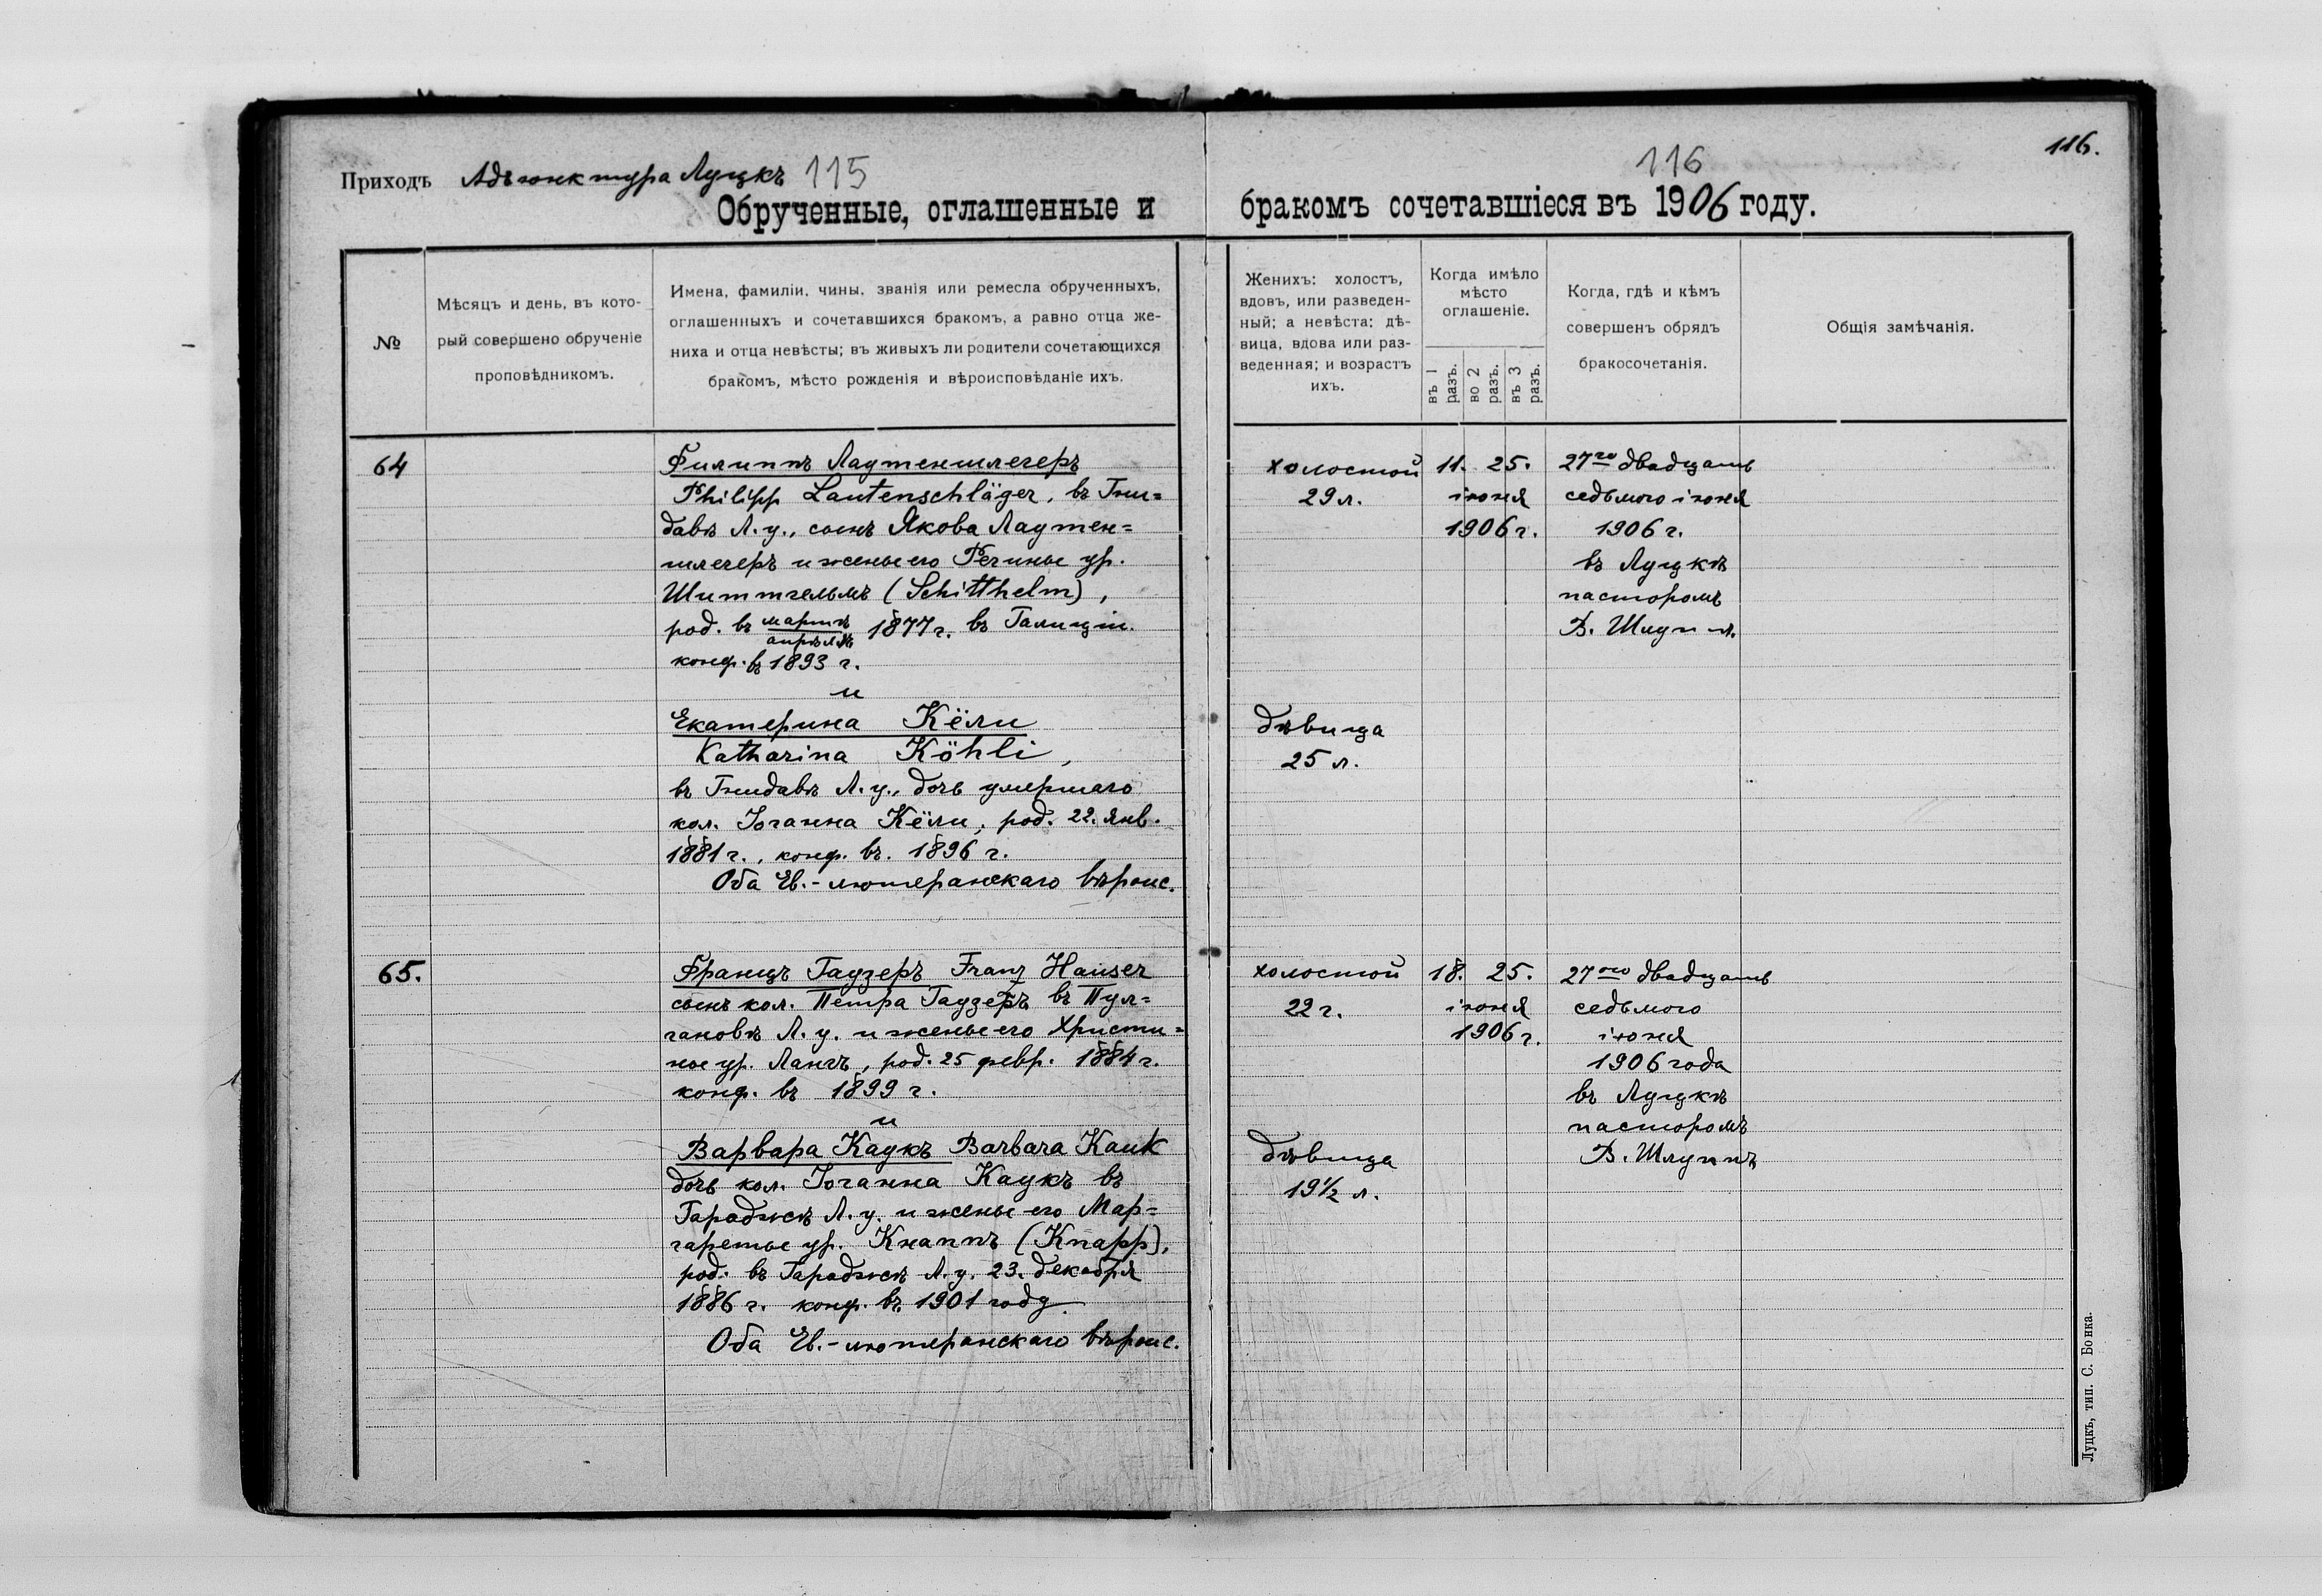 116.
Приходъ Адъюнктура Луцкъ 115
116
Обрученные, оглашенные и
бракомъ сочетавшіеся въ 1906 году.
№
Мѣсяцъ и день, въ кото-
рый совершено обрученіе
проповѣдникомъ.
Имена, фамиліи, чины, званія или ремесла обрученныхъ,
оглашенныхъ и сочетавшихся бракомъ, а равно отца же-
ниха и отца невѣсты; въ живыхъ ли родители сочетающихся
бракомъ, мѣсто рожденія и вѣроисповѣданіе ихъ.
Женихъ: холостъ,
вдовъ, или разведен-
ный; а невѣста: дѣ-
вица, вдова или раз-
веденная; и возрастъ
ихъ.
Когда имѣло
мѣсто
оглашеніе.
въ 1
разъ.
во 2
разъ.
въ 3
разъ.
Когда, гдѣ и кѣмъ
совершенъ обрядъ
бракосочетанія.
Общія замѣчанія.
64
Филиппъ Лаутеншлегеръ
Philipp Lautenschläger, въ Гни=
давѣ Л. у., сынъ Якова Лаутен=
шлегеръ и жены его Регины ур.
Шиттгельмъ (Schitthelm),
род. въ мартѣ
апрѣлѣ 1877 г. въ Галиціи.
конф. въ 1893 г.
и
Екатерина Кёли
Katharina Köhli,
въ Гнидавѣ Л. у., дочь умершаго
кол. Іоганна Кёли, род. 22. янв.
1881 г., конф. въ. 1896 г.
Оба Ев.-лютеранскаго вѣроис.
холостой
29 л.
дѣвица
25 л.
11. 25.
іюня
1906 г.
27го двадцать
седьмого іюня
1906 г.
въ Луцкѣ
пасторомъ
65.
Францъ Гаузеръ Franz Hauser
сынъ кол. Петра Гаузеръ въ Пул=
гановѣ Л. у. и жены его Христи=
ны ур. Лангъ, род. 25 февр. 1884 г.
конф. въ 1899 г.
и
Варвара Каукъ Barbara Kauk
дочь кол. Іоганна Каукъ въ
Гараджѣ Л. у. и жены его Мар=
гареты ур. Кнаппъ (Knapp),
род. въ Гараджѣ Л. у. 23. декабря
1886 г. конф. въ 1901 году.
Оба Ев.-лютеранскаго вѣроис.
холостой
22 г.
дѣвица
19 1/2 л.
18. 25.
іюня
1906 г.
27ого двадцать
седьмого
іюня
1906 года
въ Луцкѣ
пасторомъ
Луцкъ, тип. С. Бонка.